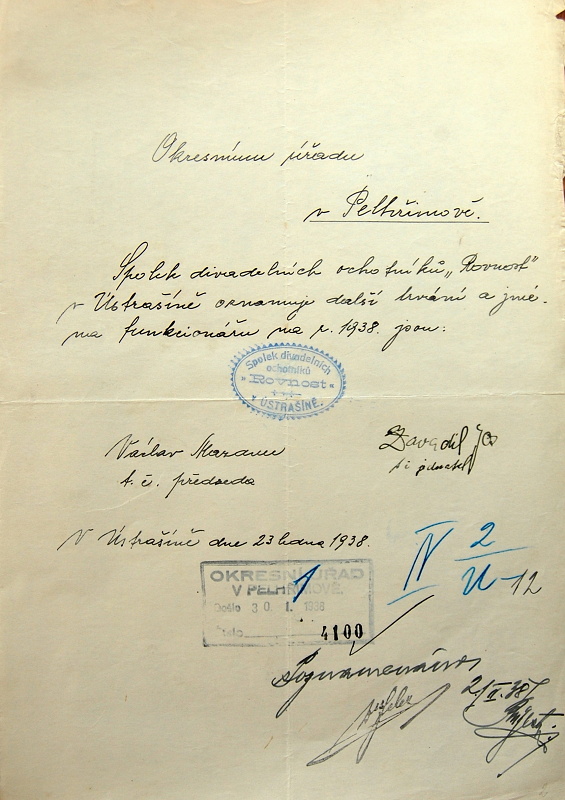 Okresnímu úřadu
v Pelhřimově.
Spolek divadelních ochotníků „Rovnost"
v Ústrašíně oznamuje další trvání a jmé-
na funkcionářu na r. 1938. jsou:
Spolek divadelních
ochotníků
„Rovnost"
v ÚSTRAŠÍNĚ.
Václav
t. č. předseda
Zavadil
t č jednatel
V Ústrašíně dne 23 ledna 1938.
IV 2
12
OKRESNÍ ÚŘAD
V PELHŘIMOVĚ.
Došlo 30. I. 1938
Číslo 4100
Poznamenáno
2/II.38